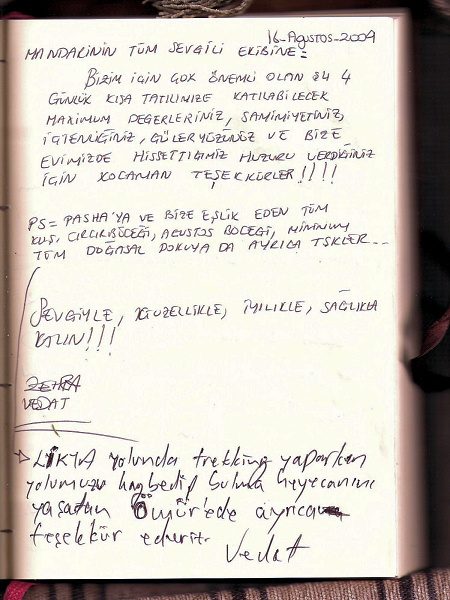 16-Ağustos-2009
MANDALİNİN TÜM SEVGİLİ EKİBİNE=
BİZİM İÇİN ÇOK ÖNEMLİ OLAN 4
GÜNLÜK KISA TATİLİMİZE KATILABİLECEK
MAXIMUM DEĞERLERİNİZ, SAMİMİYETİNİZ,
İÇTENLİĞİNİZ, GÜLERYÜZÜNÜZ VE BİZE
EVİMİZDE HİSSETTİĞİMİZ HUZURU VERDİĞİNİZ
İÇİN KOCAMAN TEŞEKKÜRLER!!!!
PS= PASHA'YA VE BİZE EŞLİK EDEN TÜM
KUŞ, CIRCIRBÖCEĞİ, AĞUSTOS BÖCEĞİ, MİNİMUM
TÜM DOĞASAL DOKUYA DA AYRICA TŞKLER...
SEVGİYLE, GÜZELLİKLE, İYİLİKLE, SAĞLIKLA
KALIN!!!
ZEHRA
VEDAT
LİKYA yolunda trekking yaparken
yolumuzu kaybedip bulma heyecanını
yaşatan Ömür'ede ayrıca
teşekkür ederiz.
Vedat